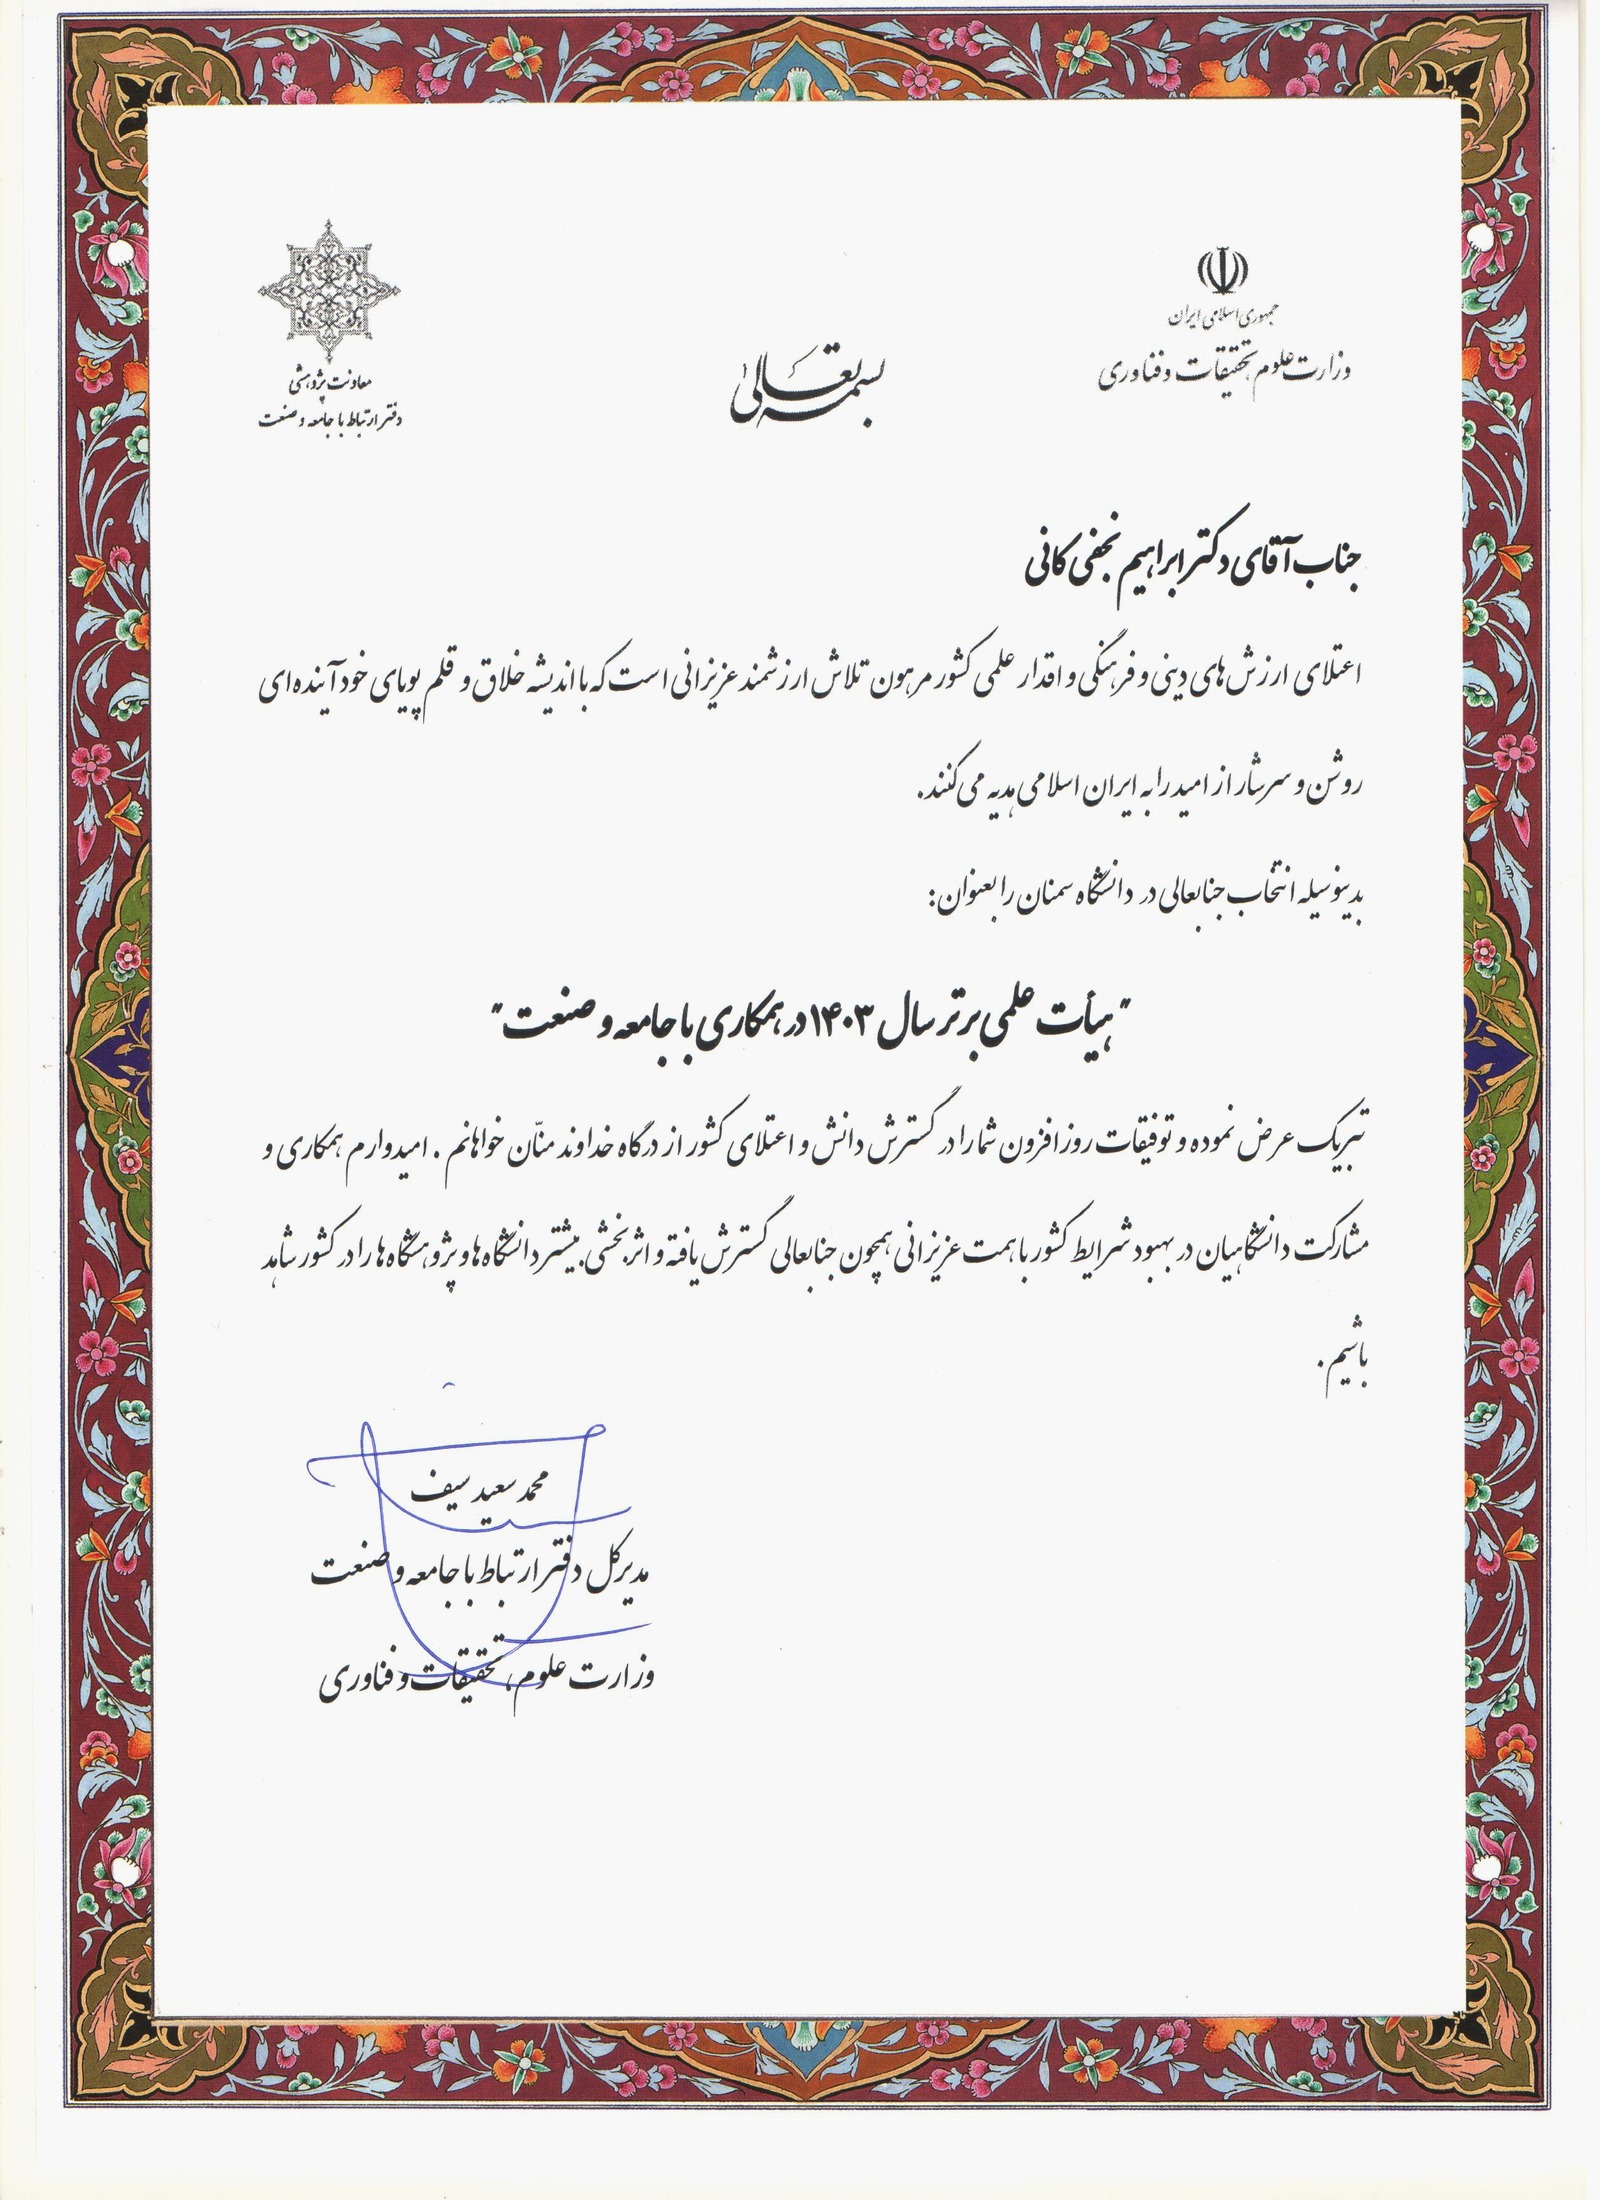 جمهوری اسلامی ایران
وزارت علوم، تحقیقات و فناوری
بسمه تعالی
معاونت پژوهشی
دفتر ارتباط با جامعه و صنعت
جناب آقای دکتر ابراهیم نجفی کانی
اعتلای ارزش های دینی و فرهنگی و اقدار علمی کشور مرهون تلاش ارزشمند عزیزانی است که با اندیشه خلاق و قلم پویای خود آینده ای
روشن و سرشار از امید را به ایران اسلامی هدیه می کنند.
بدینوسیله انتخاب جنابعالی در دانشگاه سمنان را بعنوان:
"هیأت علمی برتر سال ۱۴۰۳ در همکاری با جامعه و صنعت"
تبریک عرض نموده و توفیقات روز افزون شما را در گسترش دانش و اعتلای کشور از درگاه خداوند منّان خواهانم. امیدوارم همکاری و
مشارکت دانشگاهیان در بهبود شرایط کشور با همت عزیزانی همچون جنابعالی گسترش یافته و اثربخشی بیشتر دانشگاه ها و پژوهشگاه ها را در کشور شاهد
باشیم.
محمد سعید سیف
مدیرکل دفتر ارتباط با جامعه و صنعت
وزارت علوم، تحقیقات و فناوری